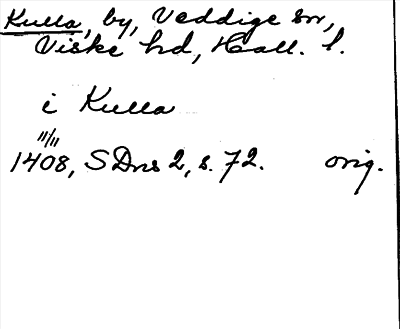 Kulla, by, Veddige sn,
Viske hd, Hall. l.
i Kulla
11/11
1408, SDns 2, s. 72. orig.